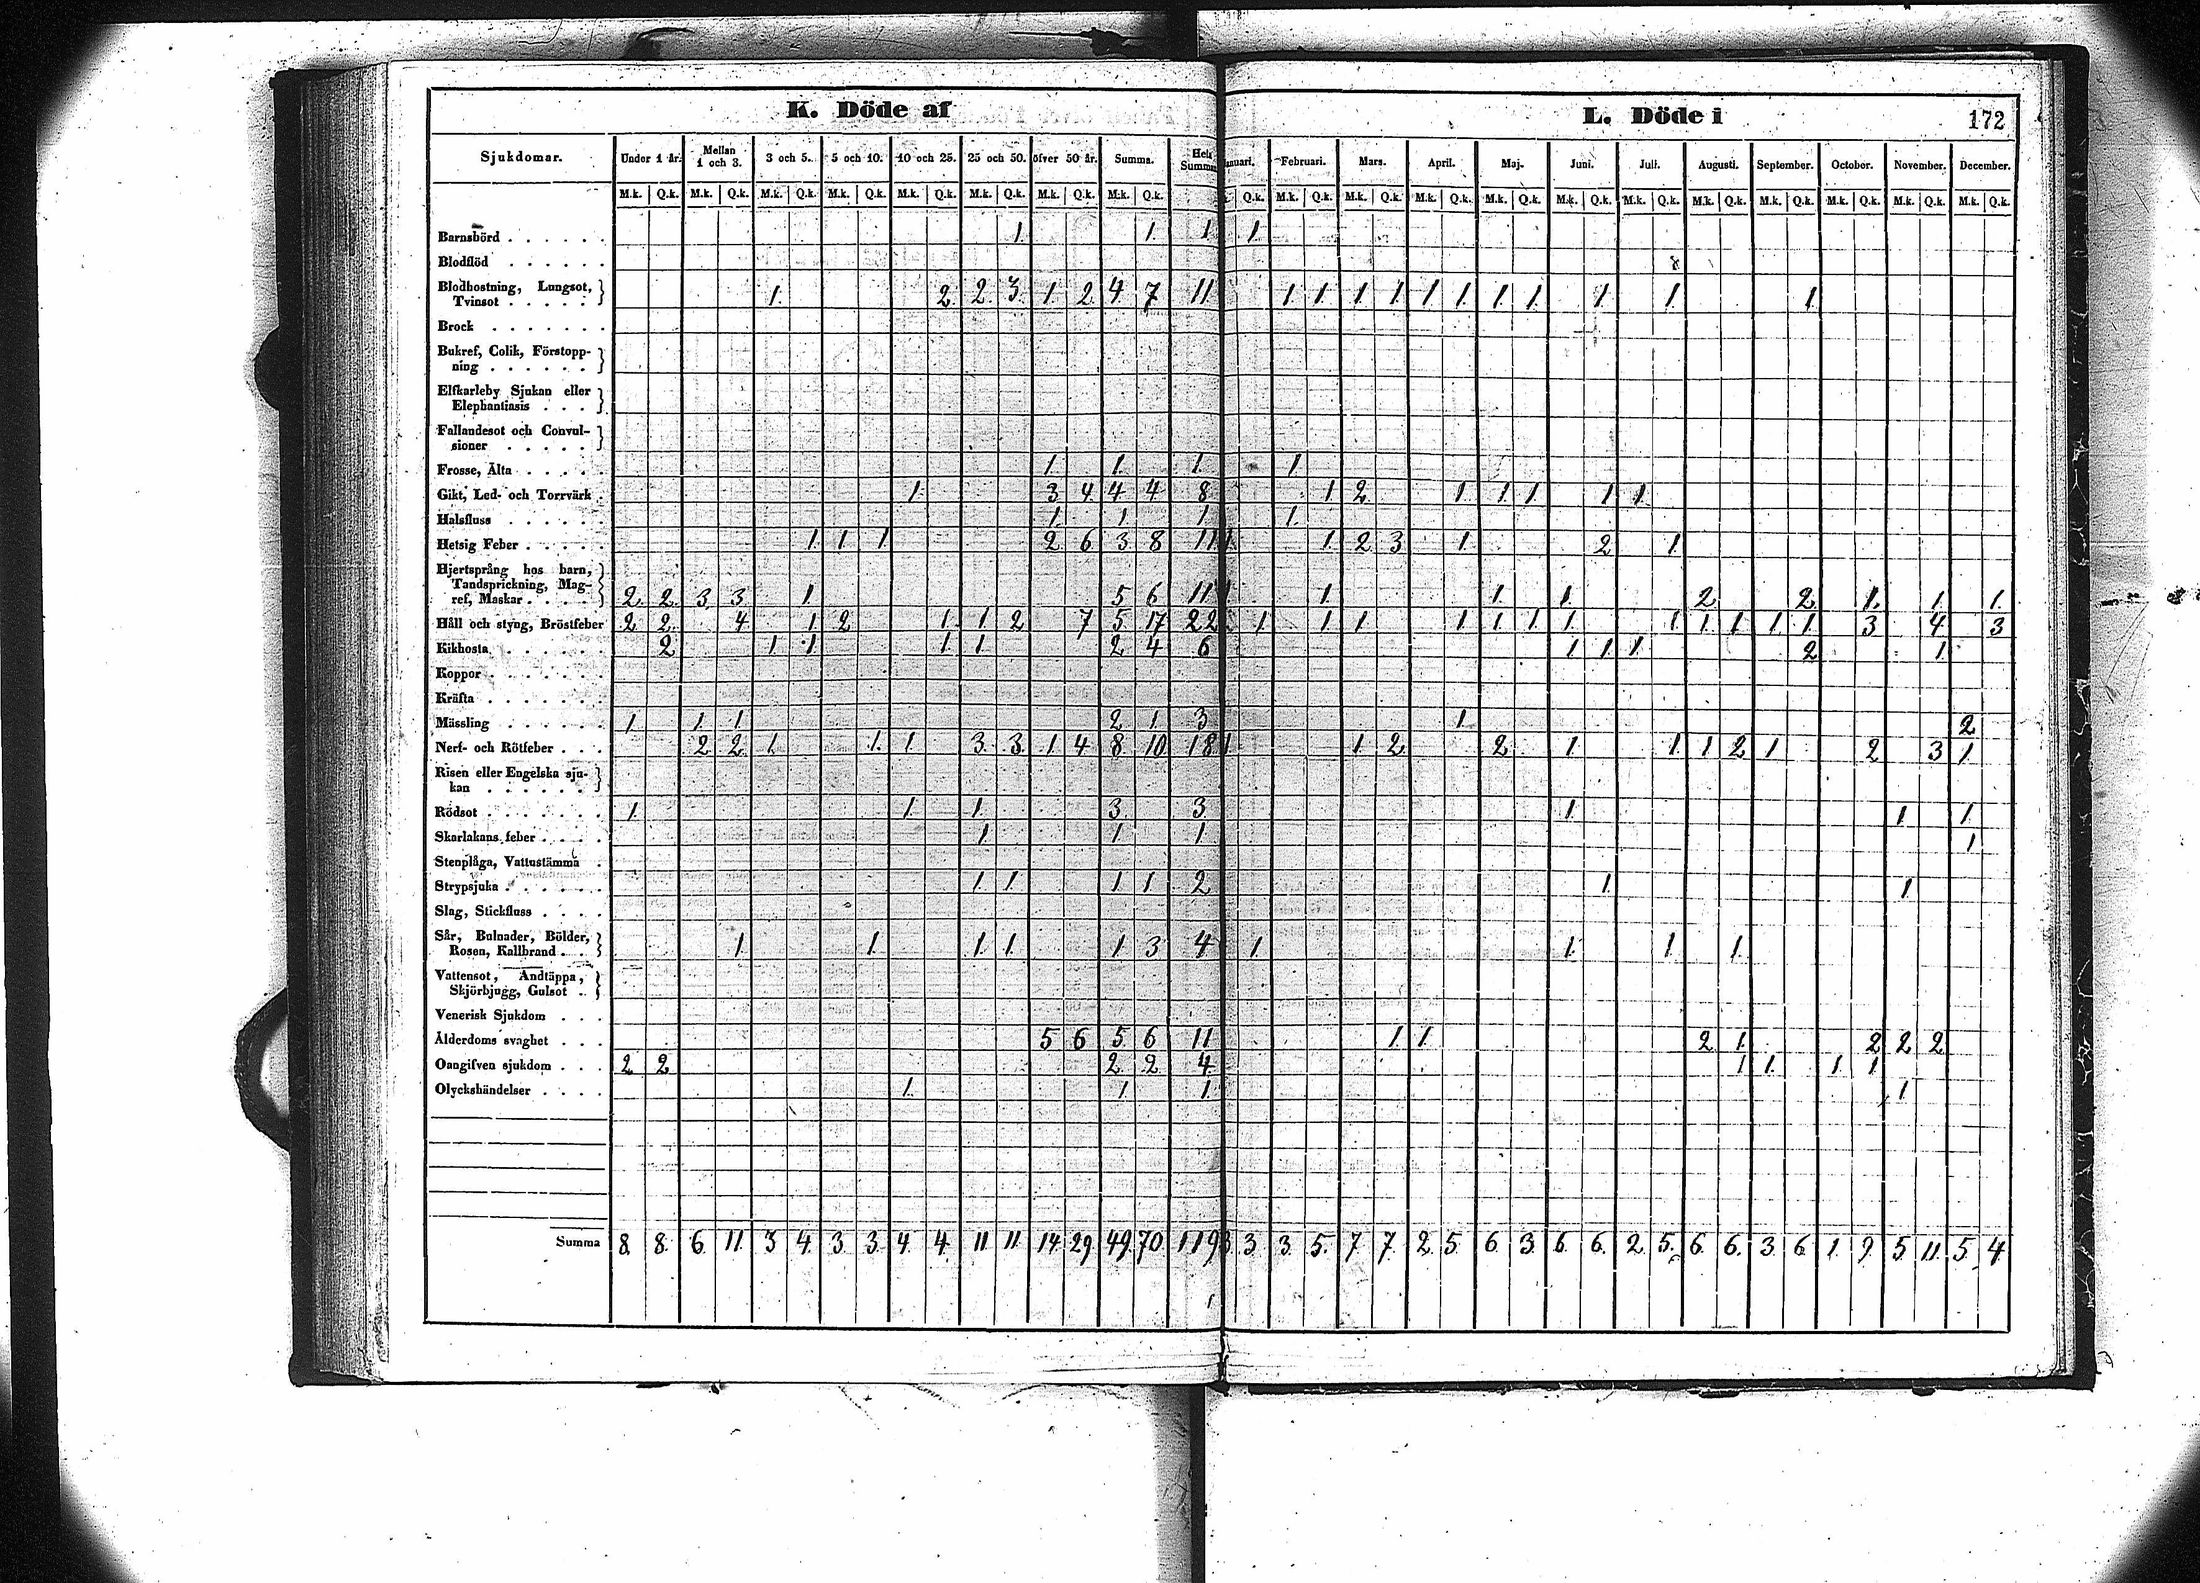 K. Döde af
L. Döde i
172
Sjukdomar. Under 1 år. Mellan 1 och 3. 3 och 5. 5 och 10. 10 och 25. 25 och 50. öfver 50 år. Summa. Februari. Mars. April. Maj. Juni. Juli. Augusti. September. October. November. December.
M.k. Q.k. M.k. Q.k. M.k. Q.k. M.k. Q.k. M.k. Q.k. M.k. Q.k. M.k. Q.k. M.k. Q.k. Q.k. M.k. Q.k. M.k. Q.k. M.k. Q.k. M.k. Q.k. M.k. Q.k. M.k. Q.k. M.k. Q.k. M.k. Q.k. M.k. Q.k. M.k. Q.k. M.k. Q.k.
Barnsbörd . . . . . . 1 1 1 1
Blodflöd . . . . . .
Blodhostning, Lungsot,
Tvinsot . . . . . 1 2 2 3 1 2 4 7 11 1 1 1 1 1 1 1 1 1 1 1
Brock . . . . . . .
Bukref, Colik, Förstopp-
ning . . . . . .
Elfkarleby Sjukan eller
Elephantiasis . . .
Fallandesot och Convul-
sioner . . . . .
Frosse, Älta . . . . . 1 1 1 1
Gikt, Led- och Torrvärk . 1 3 4 4 4 8 1 2 1 1 1 1 1
Halsfluss . . . . . . 1 1 1 1
Hetsig Feber . . . . . 1 1 1 2 6 3 8 11 1 1 2 3 1 2 1
Hjertsprång hos barn,
Tandsprickning, Mag-
ref, Maskar . . . . 2 2 3 3 1 5 6 11 1 1 1 1 2 2 1 1 1
Håll och styng, Bröstfeber 2 2 4 1 2 1 1 2 7 5 17 22 1 1 1 1 1 1 1 1 1 1 1 1 1 3 4 3
Kikhosta . . . . . . 2 1 1 1 1 2 4 6 1 1 1 2 1
Koppor . . . . . . .
Kräfta . . . . . . .
Mässling . . . . . . 1 1 1 2 1 3 1 2
Nerf- och Rötfeber . . . 2 2 1 1 1 3 3 1 4 8 10 18 1 1 2 2 1 1 1 2 1 2 3 1
Risen eller Engelska sju-
kan . . . . . .
Rödsot . . . . . . . 1 1 1 3 3 1 1 1
Skarlakans feber . . . . 1 1 1 1
Stenplåga, Vattustämma .
Strypsjuka . . . . . . 1 1 1 1 2 1 1
Slag, Stickfluss . . . .
Sår, Bulnader, Bölder,
Rosen, Kallbrand . . 1 1 1 1 1 3 4 1 1 1 1
Vattensot, Andtäppa,
Skjörbjugg, Gulsot . .
Venerisk Sjukdom . . .
Ålderdoms svaghet . . . 5 6 5 6 11 1 1 2 1 2 2 2
Oangifven sjukdom . . . 2 2 2 2 4 1 1 1 1
Olyckshändelser . . . . 1 1 1 1
Summa 8 8 6 11 3 4 3 3 4 4 11 11 14 29 49 70 119 3 3 3 5 7 7 2 5 6 3 6 6 2 5 6 6 3 6 1 9 5 11 5 4